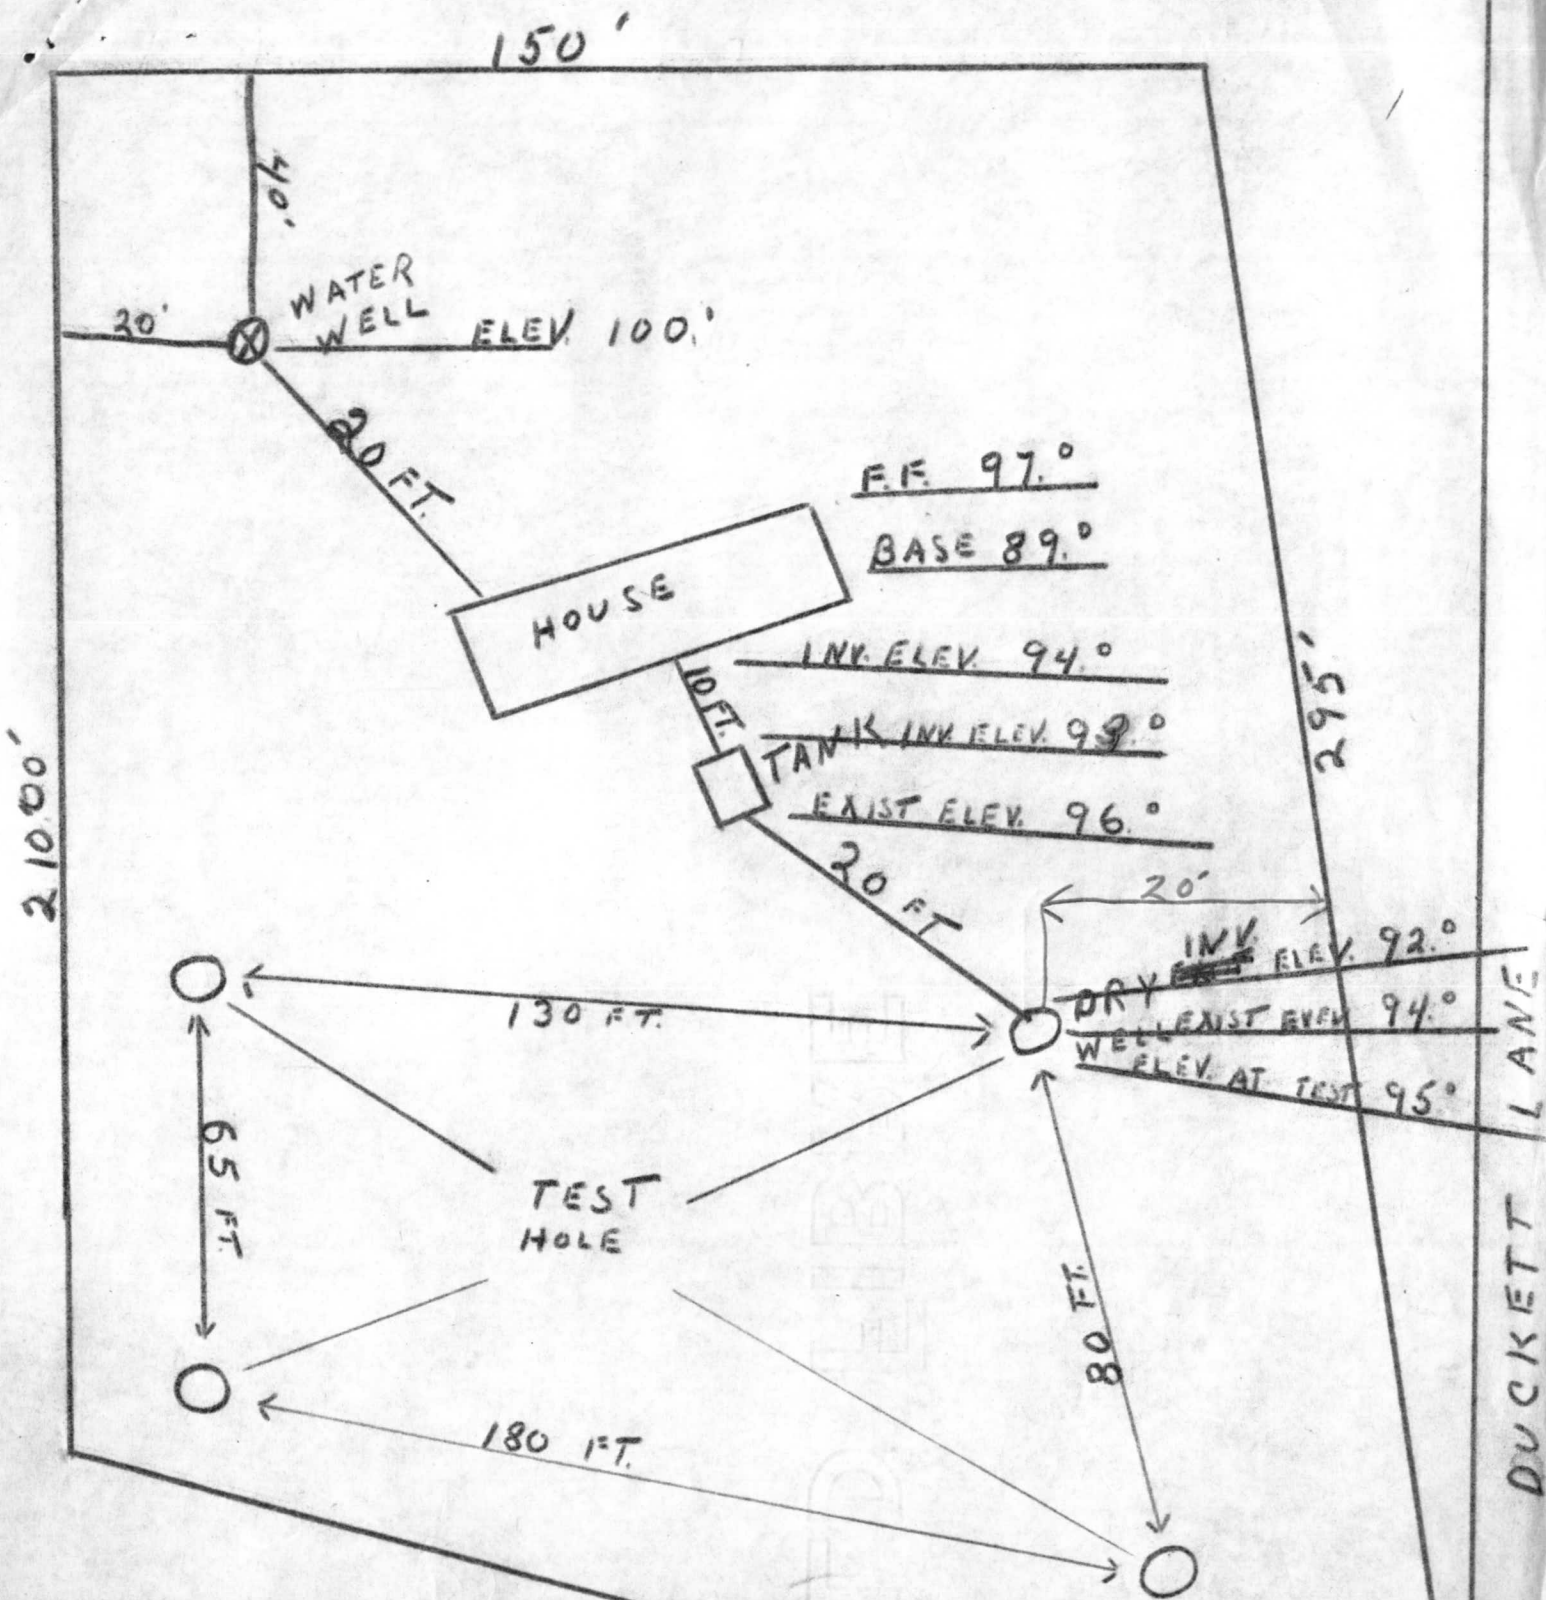 150'
40'
20'
WATER
WELL
ELEV. 100.'
20 FT.
F.F. 97.°
BASE 89.°
HOUSE
INV. ELEV. 94.°
10 FT.
TANK INV. ELEV. 93.°
EXIST ELEV. 96.°
295'
210.00'
20 FT
20'
INV.
DRY ELEV. 92.°
WELL EXIST EVEV. 94.°
ELEV. AT TEST 95°
130 FT.
65 FT.
TEST
HOLE
80 FT.
180 FT.
DUCKETT LANE